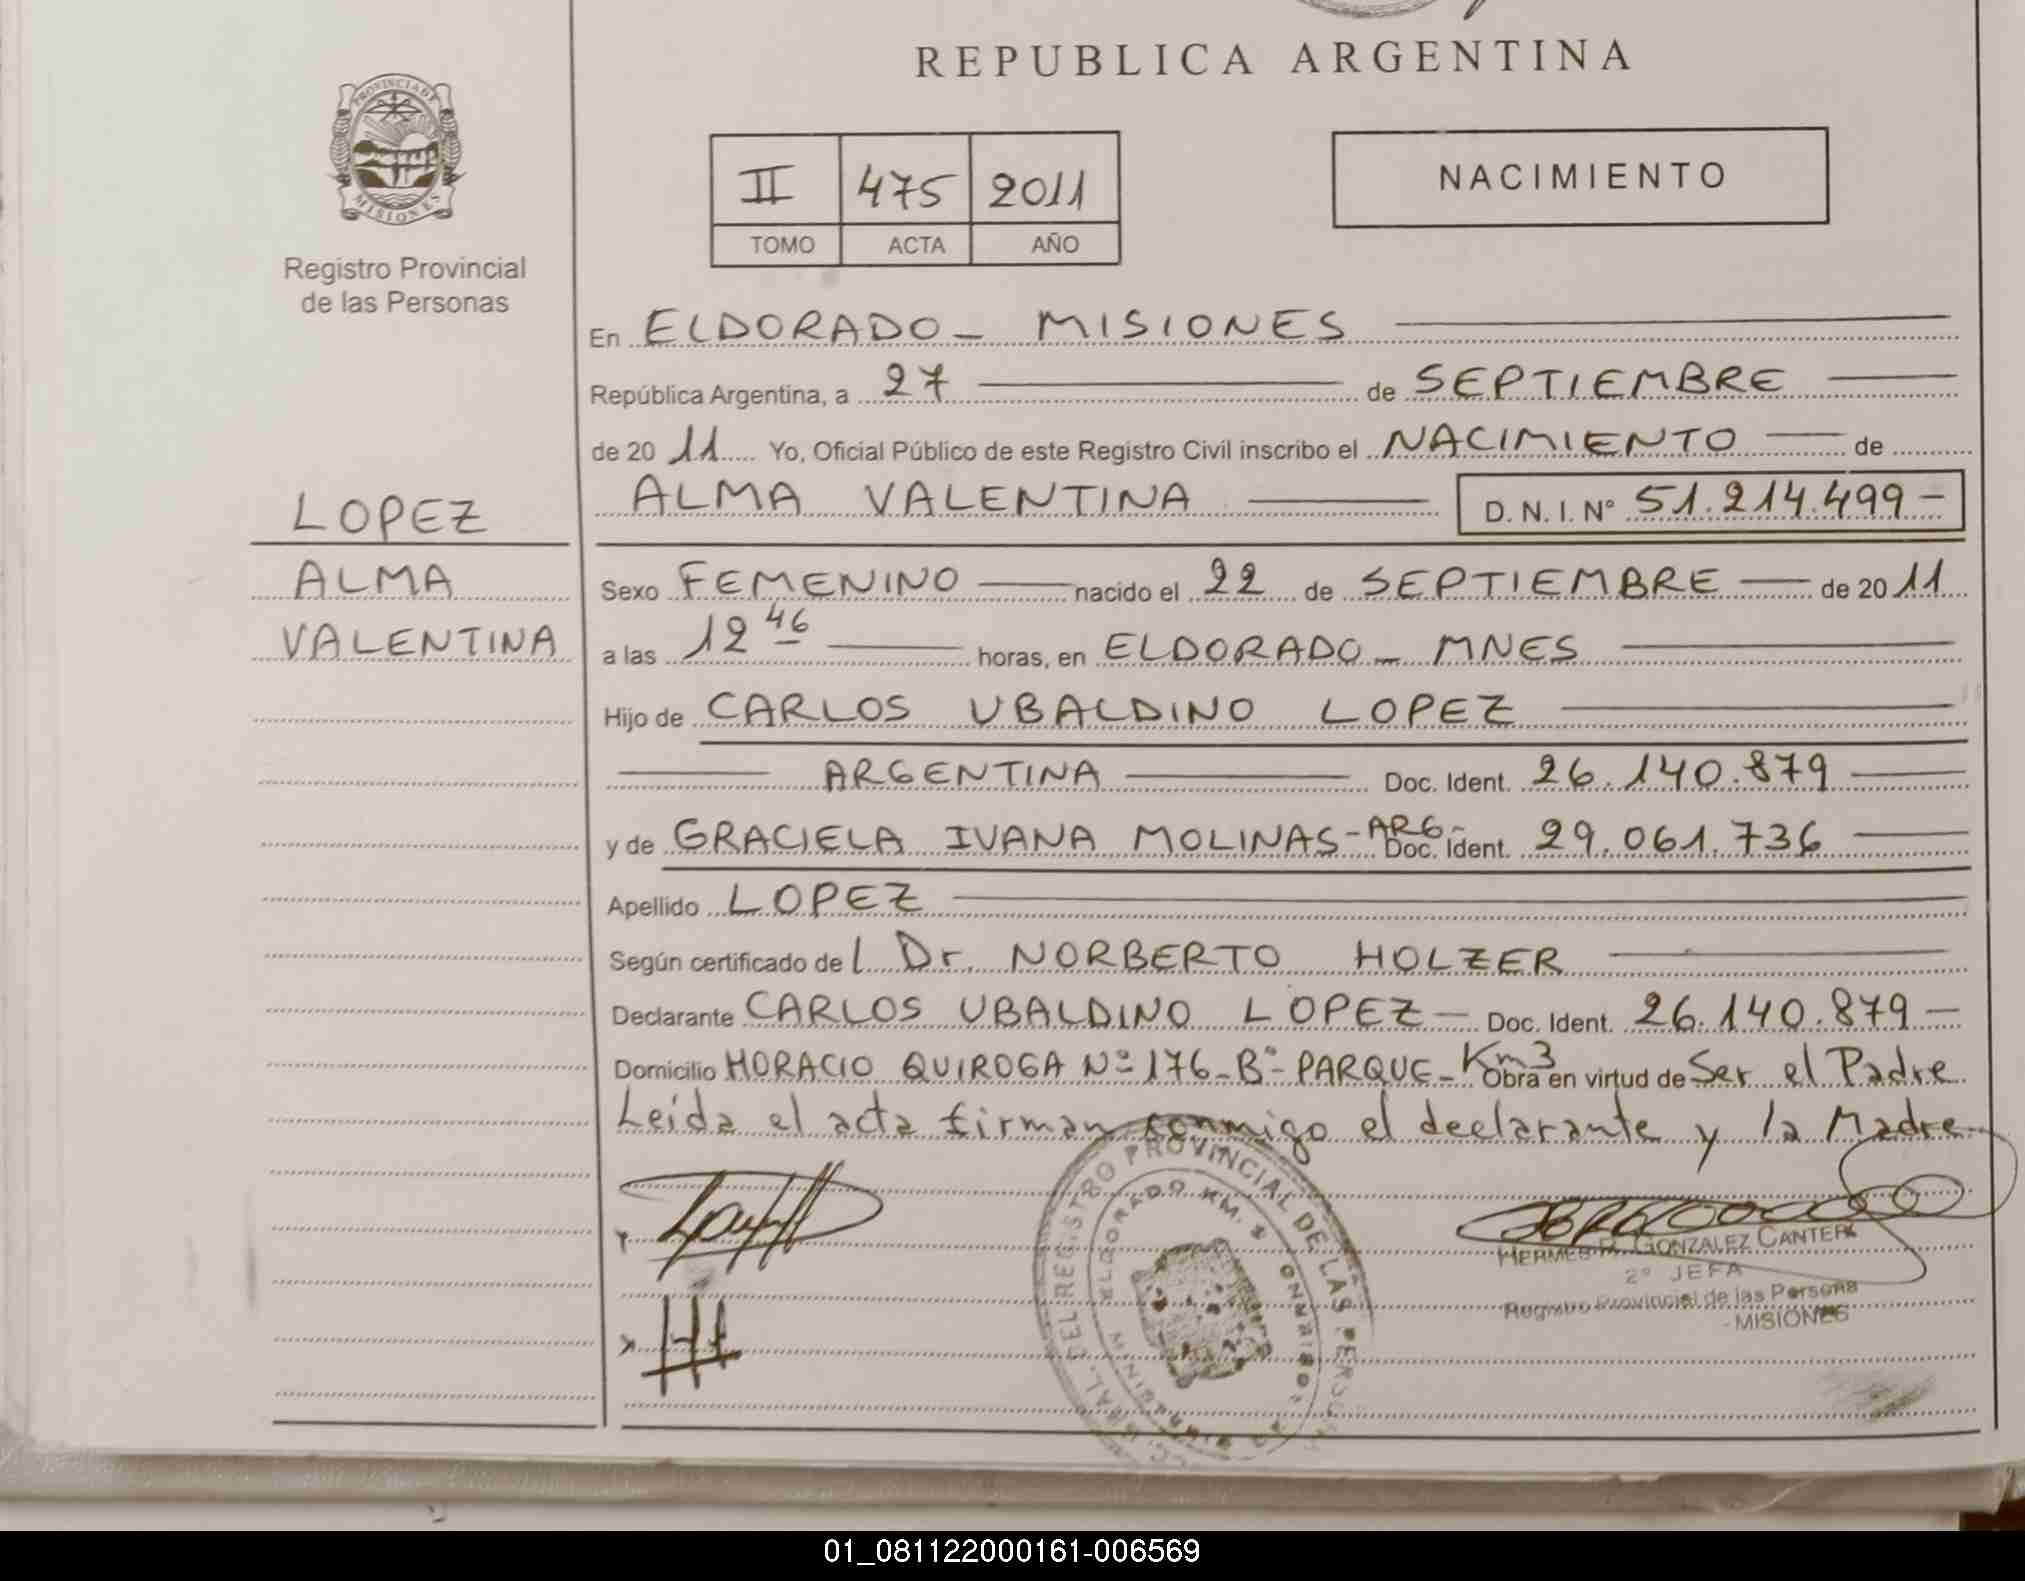 REPUBLICA ARGENTINA
PROVINCIA DE
MISIONES
Registro Provincial
de las Personas
II 475 2011
TOMO ACTA AÑO
NACIMIENTO
En ELDORADO - MISIONES
República Argentina, a 27 de SEPTIEMBRE
de 20 11 Yo, Oficial Público de este Registro Civil inscribo el NACIMIENTO de
ALMA VALENTINA D. N. I. N° 51.214.499-
LOPEZ
ALMA
VALENTINA
Sexo FEMENINO nacido el 22 de SEPTIEMBRE de 20 11
a las 12 46 horas, en ELDORADO - MNES
Hijo de CARLOS UBALDINO LOPEZ
ARGENTINA Doc. Ident. 26.140.879
y de GRACIELA IVANA MOLINAS - ARG- Doc. Ident. 29.061.736
Apellido LOPEZ
Según certificado de l Dr. NORBERTO HOLZER
Declarante CARLOS UBALDINO LOPEZ - Doc. Ident. 26.140.879 -
Domicilio HORACIO QUIROGA Nº 176 - Bº- PARQUE - Km 3 Obra en virtud de Ser el Padre
Leida el acta firman conmigo el declarante y la Madre
REGISTRO PROVINCIAL DE LAS PERSONAS
ELDORADO KM.
HERMES R. GONZALEZ CANTERO
2° JEFA
Registro Provincial de las Persona
- MISIONES
01_081122000161-006569